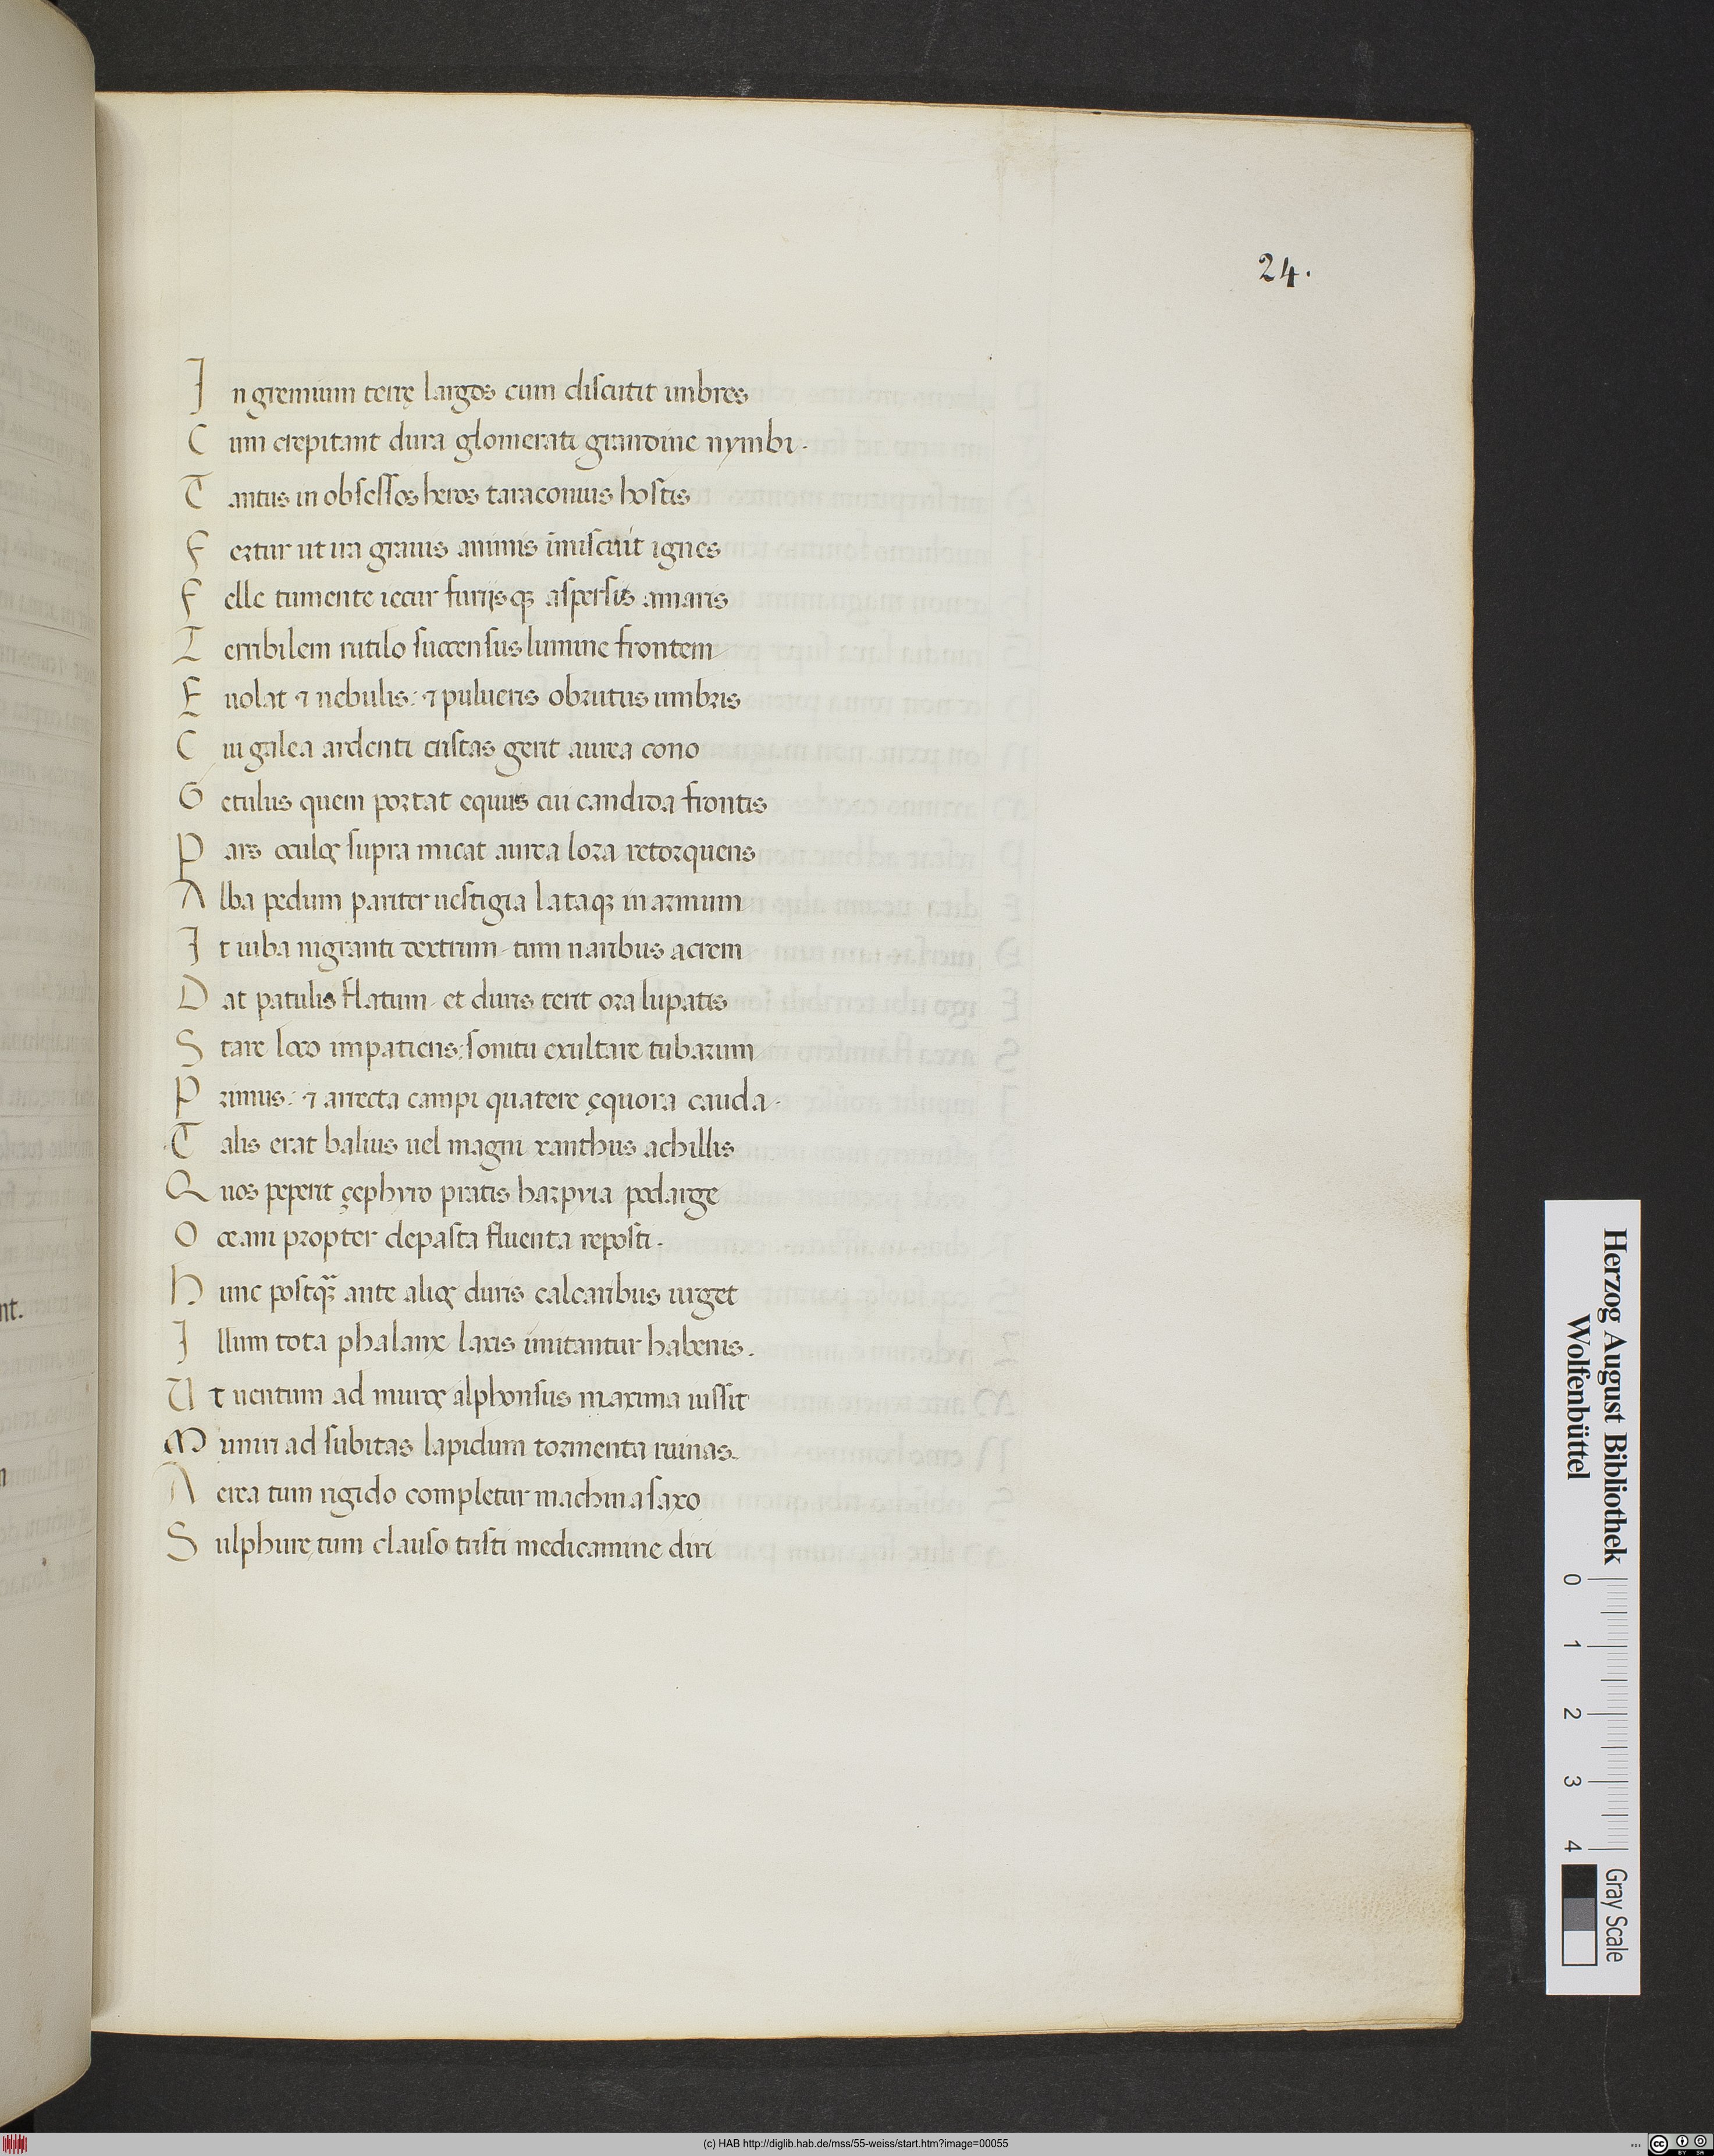 24.
In gremium terrę largos cum discutit imbres
Cum crepitant dura glomerati grandine nymbi.
Tantus in obsessos heros taraconius hostis
Fertur ut ira grauis animis imiscuit ignes
Felle tumente iecur furijsqꝫ aspersit amaris
Terribilem rutilo succensus lumine frontem
Euolat ⁊ nebulis: ⁊ pulueris obrutus umbris
Cui galea ardenti cristas gerit aurea cono
Getulus quem portat equus cui candida frontis
Pars oculoꝝ supra micat aurea lora retorquens
Alba pedum pariter uestigia lataqꝫ in armum
It iuba nigranti dextrum. tum naribus acrem
Dat patulis flatum. et duris terit ora lupatis
Stare loco impatiens: sonitu exultare tubarum
Primus: ⁊ arrecta campi quatere ęquora cauda.
Talis erat balius uel magni xanthus achillis
Quos peperit çephyro pratis harpyia podarge
Oceani propter depasta fluenta reposti.
Hunc postqꝫ̃ ante alioꝝ duris calcaribus urget
Illum tota phalanx laxis imitantur habenis.
Ut uentum ad muroꝝ alphonsus maxima iussit
Muniri ad subitas lapidum tormenta ruinas.
Aerea tum rigido completur machina saxo
Sulphure, tum clauso tristi medicamine diri
nt.
Herzog August Bibliothek
Wolfenbüttel
0 1 2 3 4
Gray Scale
(c) HAB http://diglib.hab.de/mss/55-weiss/start.htm?image=00055